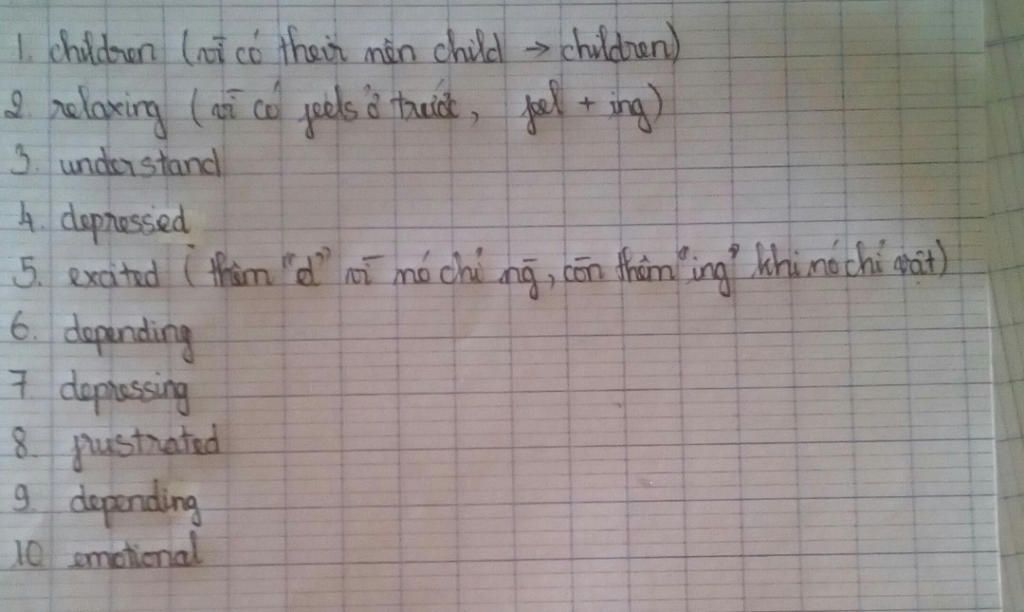 1. children (vì có their nên child → children)
2. relaxing (vì có feels ở trước, feel + ing)
3. understand
4. depressed
5. excited (thêm "d" vì nó chỉ ng̃, còn thêm "ing" khi nó chỉ vật)
6. depending
7 depressing
8. frustrated
9. depending
10 emotional